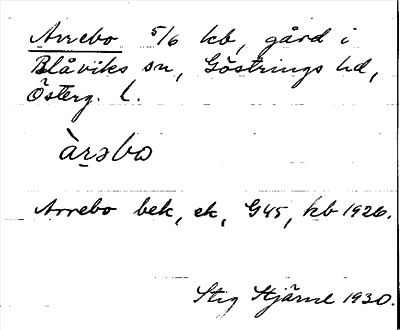 Arrebo 5/6 kb, gård i
Blåviks sn, Göstrings hd,
Österg. l.
àrəbo
Arrebo bek, ek, G45, kb 1926.
Stig Stjärne 1930.